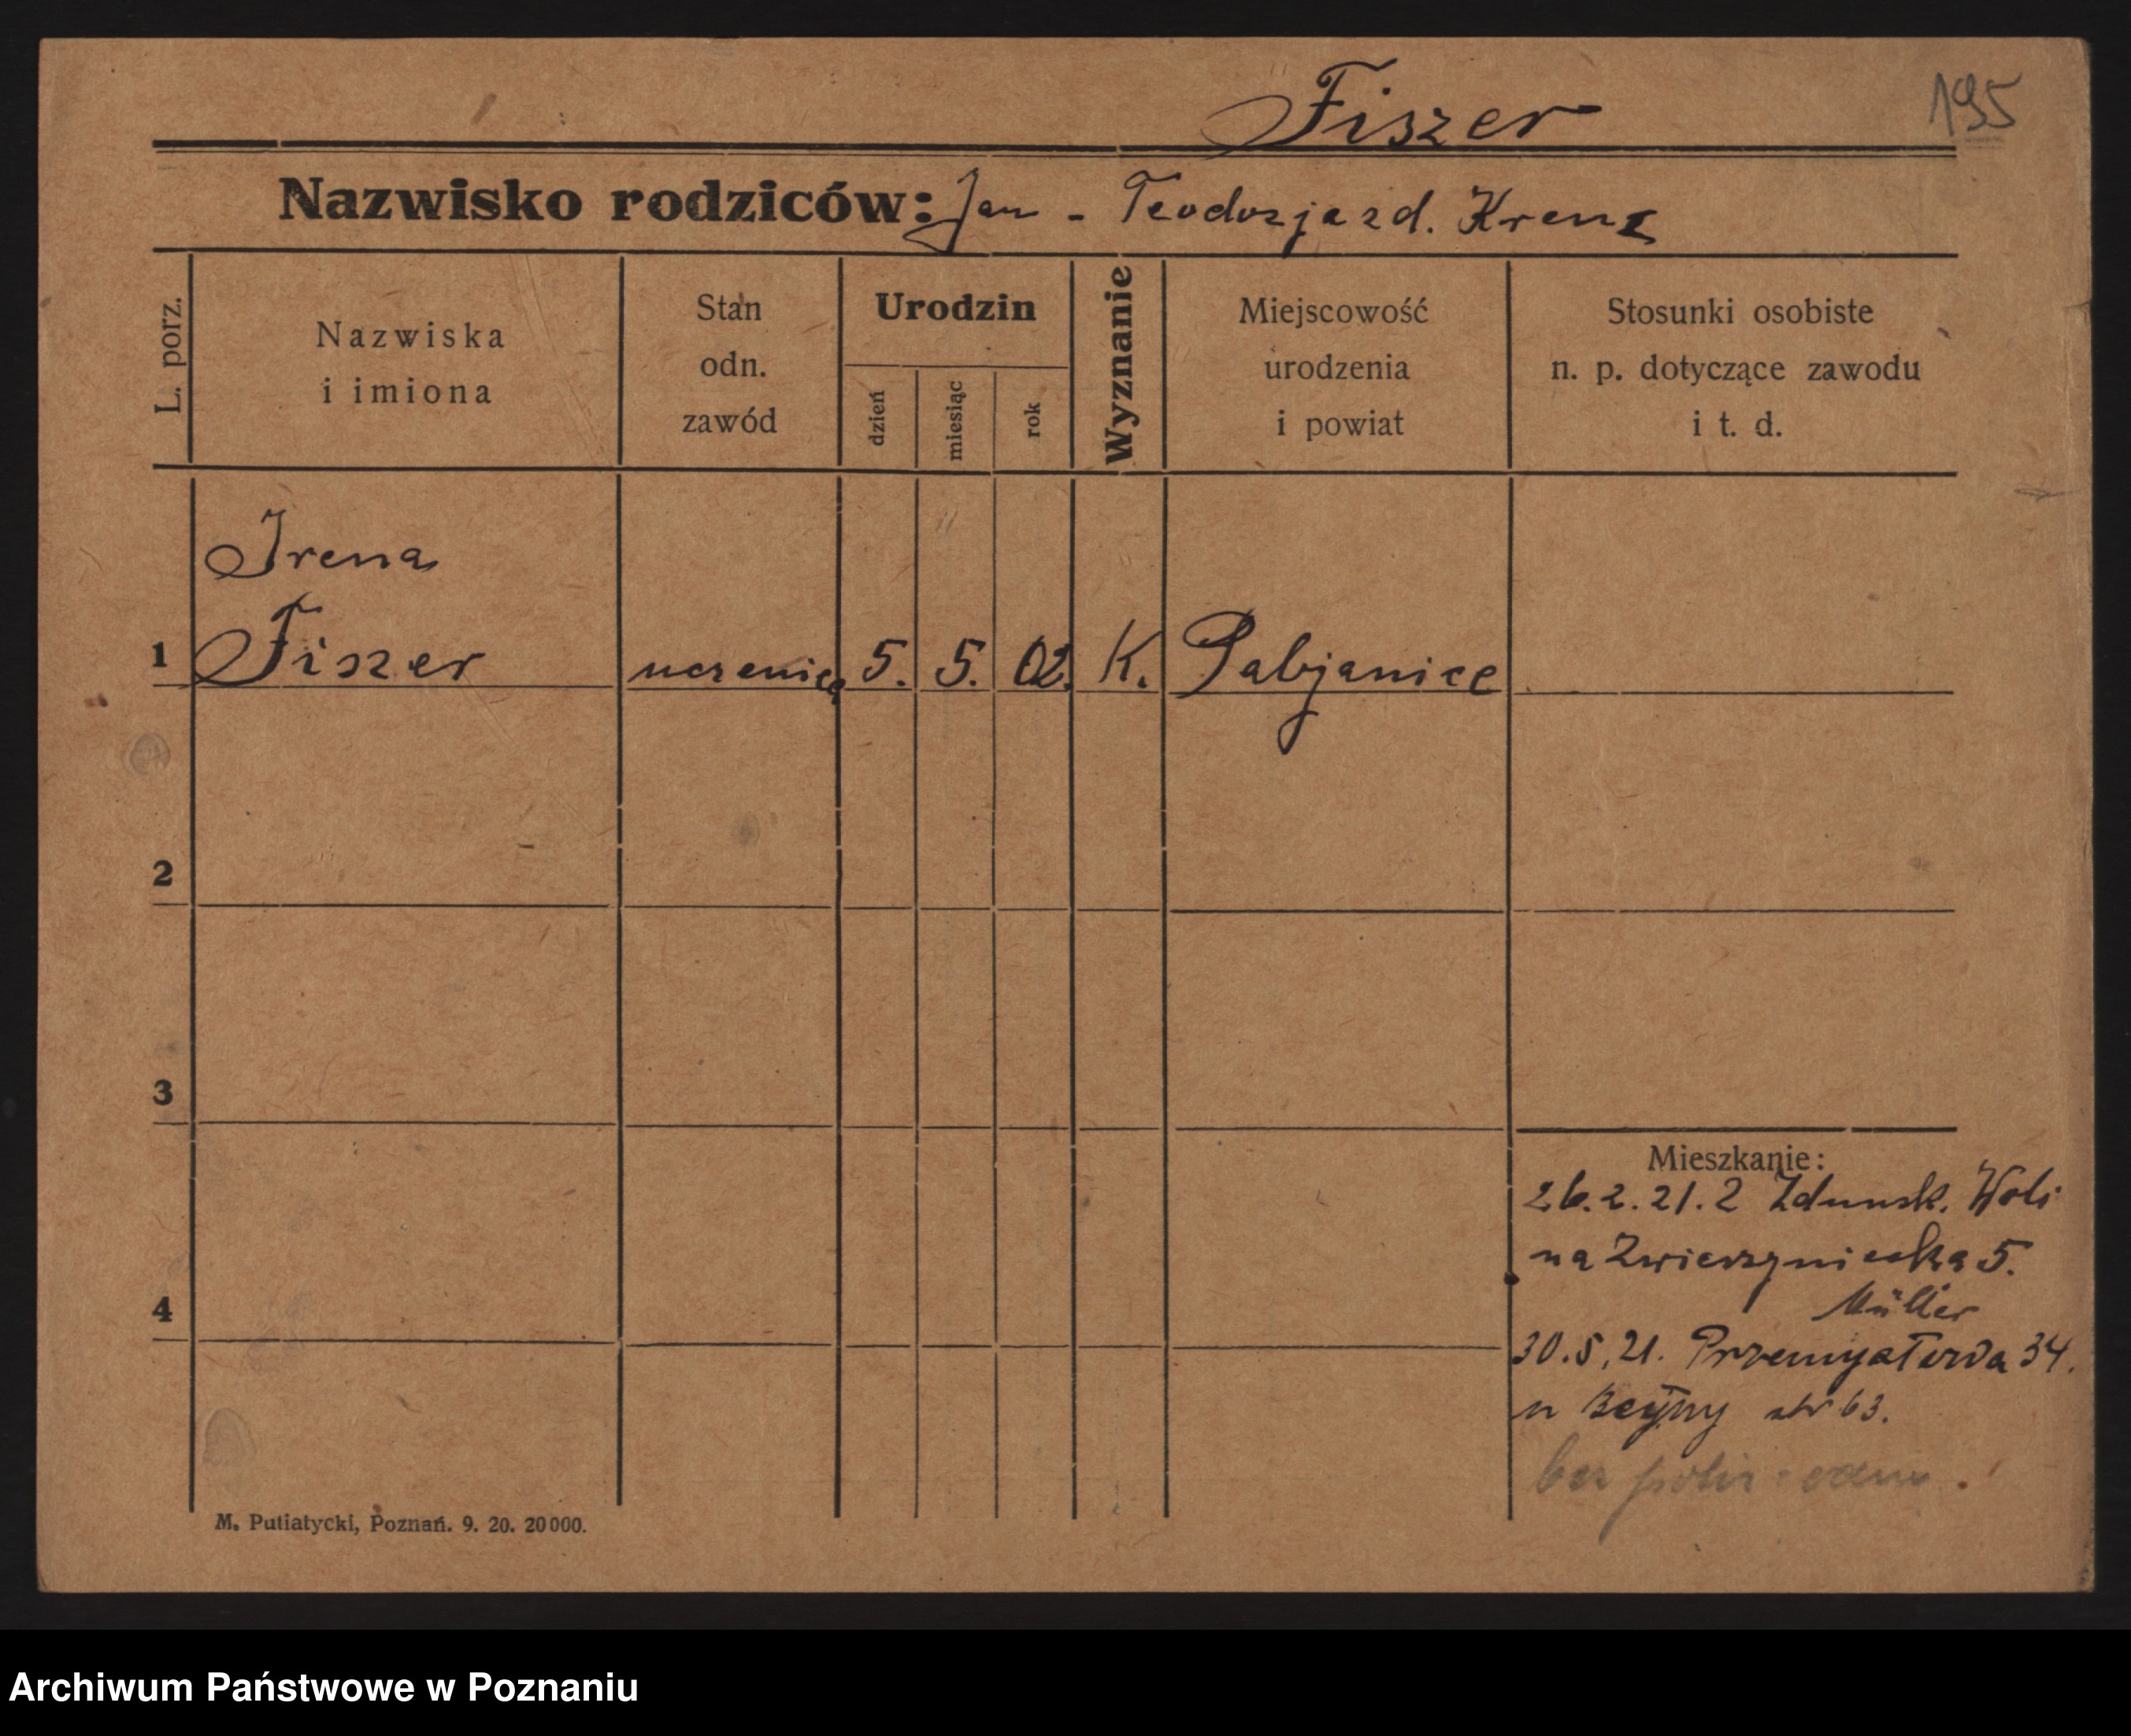 Fiszer
195
Nazwisko rodziców: Jan - Teodozja zd. Krenz
L. porz.
Nazwiska
i imiona
Stan
odn.
zawód
Urodzin
dzień
miesiąc
rok
Wyznanie
Miejscowość
urodzenia
i powiat
Stosunki osobiste
n. p. dotyczące zawodu
i t. d.
Irena
1 Fiszer uczenica 5. 5. 02. K. Pabjanice
2
3
Mieszkanie:
26.2.21. z Zdunsk. Woli
na Zwierzyniecka 5.
4
Müller
30.5.21. Przemysłowa 34.
str 63.
bez
M. Putiatycki, Poznań. 9. 20. 20000.
Archiwum Państwowe w Poznaniu